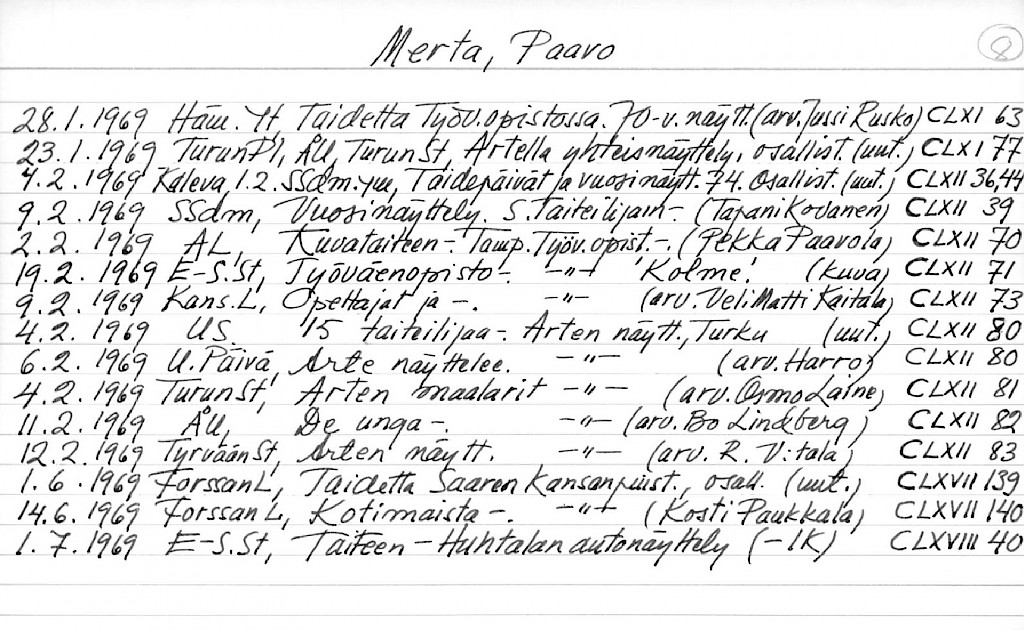 Merta, Paavo
8
28.1.1969 Häm. Yt, Taidetta Työv.opistossa. 70-v. näytt. (arv. Jussi Rusko) CLXI 63
23.1.1969 TurunPl, ÅU, TurunSt, Artella yhteisnäyttely, osallist. (uut.) CLXI 77
4.2.1969 Kaleva, 1.2. SSdm. ym, Taidepäivät ja vuosinäytt. 74. Osallist. (uut.) CLXII 36,44
9.2.1969 SSdm, Vuosinäyttely. S.Taiteilijain-. (Tapani Kovanen) CLXII 39
2.2.1969 AL, Kuvataiteen-. Tamp. Työv.opist.-. (Pekka Paavola) CLXII 70
19.2.1969 E-S.St, Työväenopisto-. -"- 'Kolme'. (kuva) CLXII 71
9.2.1969 Kans.L, Opettajat ja -. -"- (arv. VeliMatti Kaitala) CLXII 73
4.2.1969 US. '15 taiteilijaa-. Arten näytt., Turku (uut.) CLXII 80
6.2.1969 U.Päivä, Arte näyttelee. -"- (arv. Harro) CLXII 80
4.2.1969 TurunSt, Arten maalarit -"- (arv. Osmo Laine) CLXII 81
11.2.1969 ÅU, De unga-. -"- (arv. Bo Lindberg) CLXII 82
12.2.1969 TyrväänSt, Arten näytt. -"- (arv. R. V:tala) CLXII 83
1.6.1969 ForssanL, Taidetta Saaren Kansanpuist., osall. (uut.) CLXVII 139
14.6.1969 ForssanL, Kotimaista-. -"- (Kosti Paukkala) CLXVII 140
1.7.1969 E-S.St, Taiteen-Huhtalan autonäyttely (-IK) CLXVIII 40